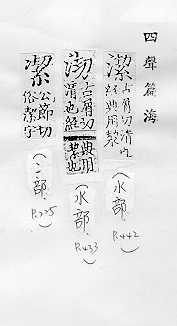 四聲篇海
潔
古屑切清也
經典用絜
(水部
P.442)
㓗
古屑切
清也經
典用
絜也
(水部
P.433)
㓗公節切
俗潔字
(冫部
P.225)